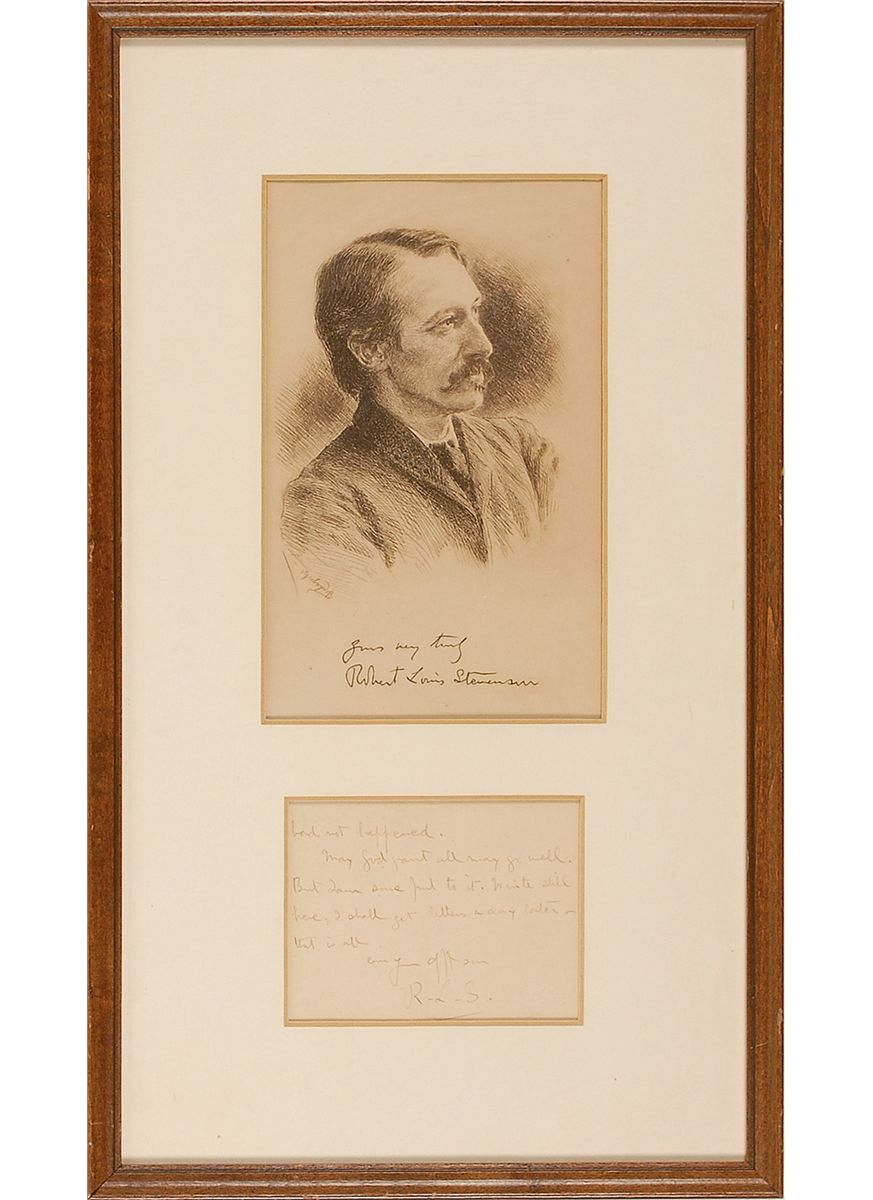 yours very truly
Robert Louis Stevenson
had not happened.
May God grant all may go well.
But I am sore put to it. Write still
here, I shall get letters a day later –
that is all.
ever your aff son
R-L-S.